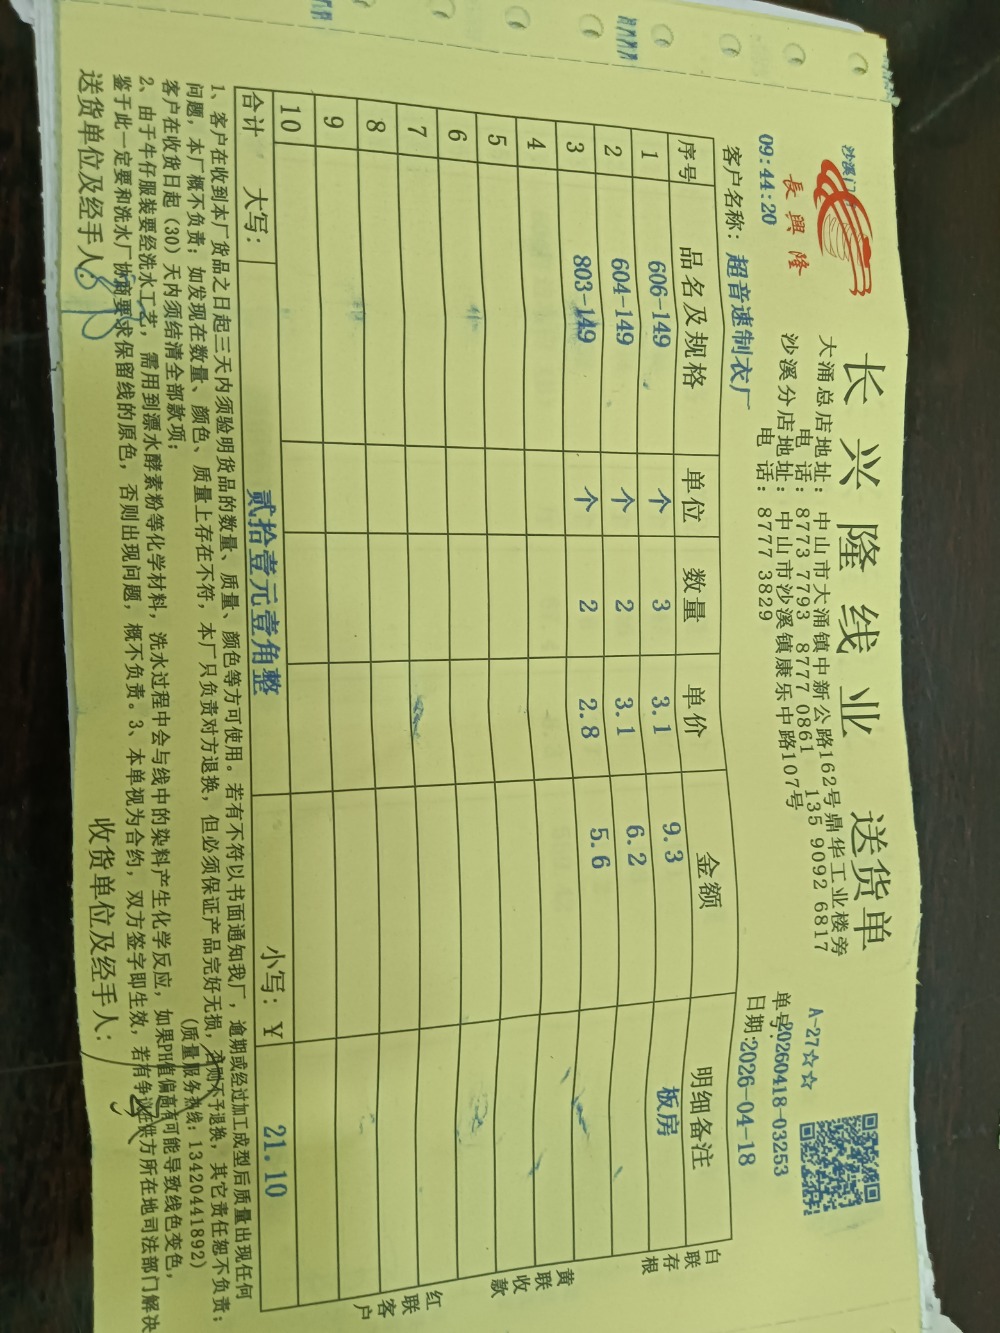 沙溪门
長興隆
长兴隆线业 送货单
大涌总店地址: 中山市大涌镇中新公路162号鼎华工业楼旁
电 话: 8773 7793 8777 0861 135 9092 6817
沙溪分店地址: 中山市沙溪镇康乐中路107号
电 话: 8777 3829
A-27☆☆
单号:20260418-03253
日期:2026-04-18
09:44:20
客户名称: 超音速制衣厂
序号 品名及规格 单位 数量 单价 金额 明细备注
1 606-149 个 3 3.1 9.3 板房
2 604-149 个 2 3.1 6.2
3 803-149 个 2 2.8 5.6
4
5
6
7
8
9
10
合计 大写: 贰拾壹元壹角整 小写: ¥ 21.10
白联存根
黄联收款
红联客户
1、客户在收到本厂货品之日起三天内须验明货品的数量、质量、颜色等方可使用。若有不符以书面通知我厂, 逾期或经过加工成型后质量出现任何
问题, 本厂概不负责; 如发现在数量、颜色、质量上存在不符, 本厂只负责对方退换, 但必须保证产品完好无损, 否则不予退换, 其它责任恕不负责;
客户在收货日起(30)天内须结清全部款项; (质量服务热线: 13420441892)
2、由于牛仔服装要经洗水工艺, 需用到漂水酵素粉等化学材料, 洗水过程中会与线中的染料产生化学反应, 如果PH值偏高有可能导致线色变色,
鉴于此一定要和洗水厂协商要求保留线的原色, 否则出现问题, 概不负责。3、本单视为合约, 双方签字即生效, 若有争议在供方所在地司法部门解决
送货单位及经手人: 收货单位及经手人: